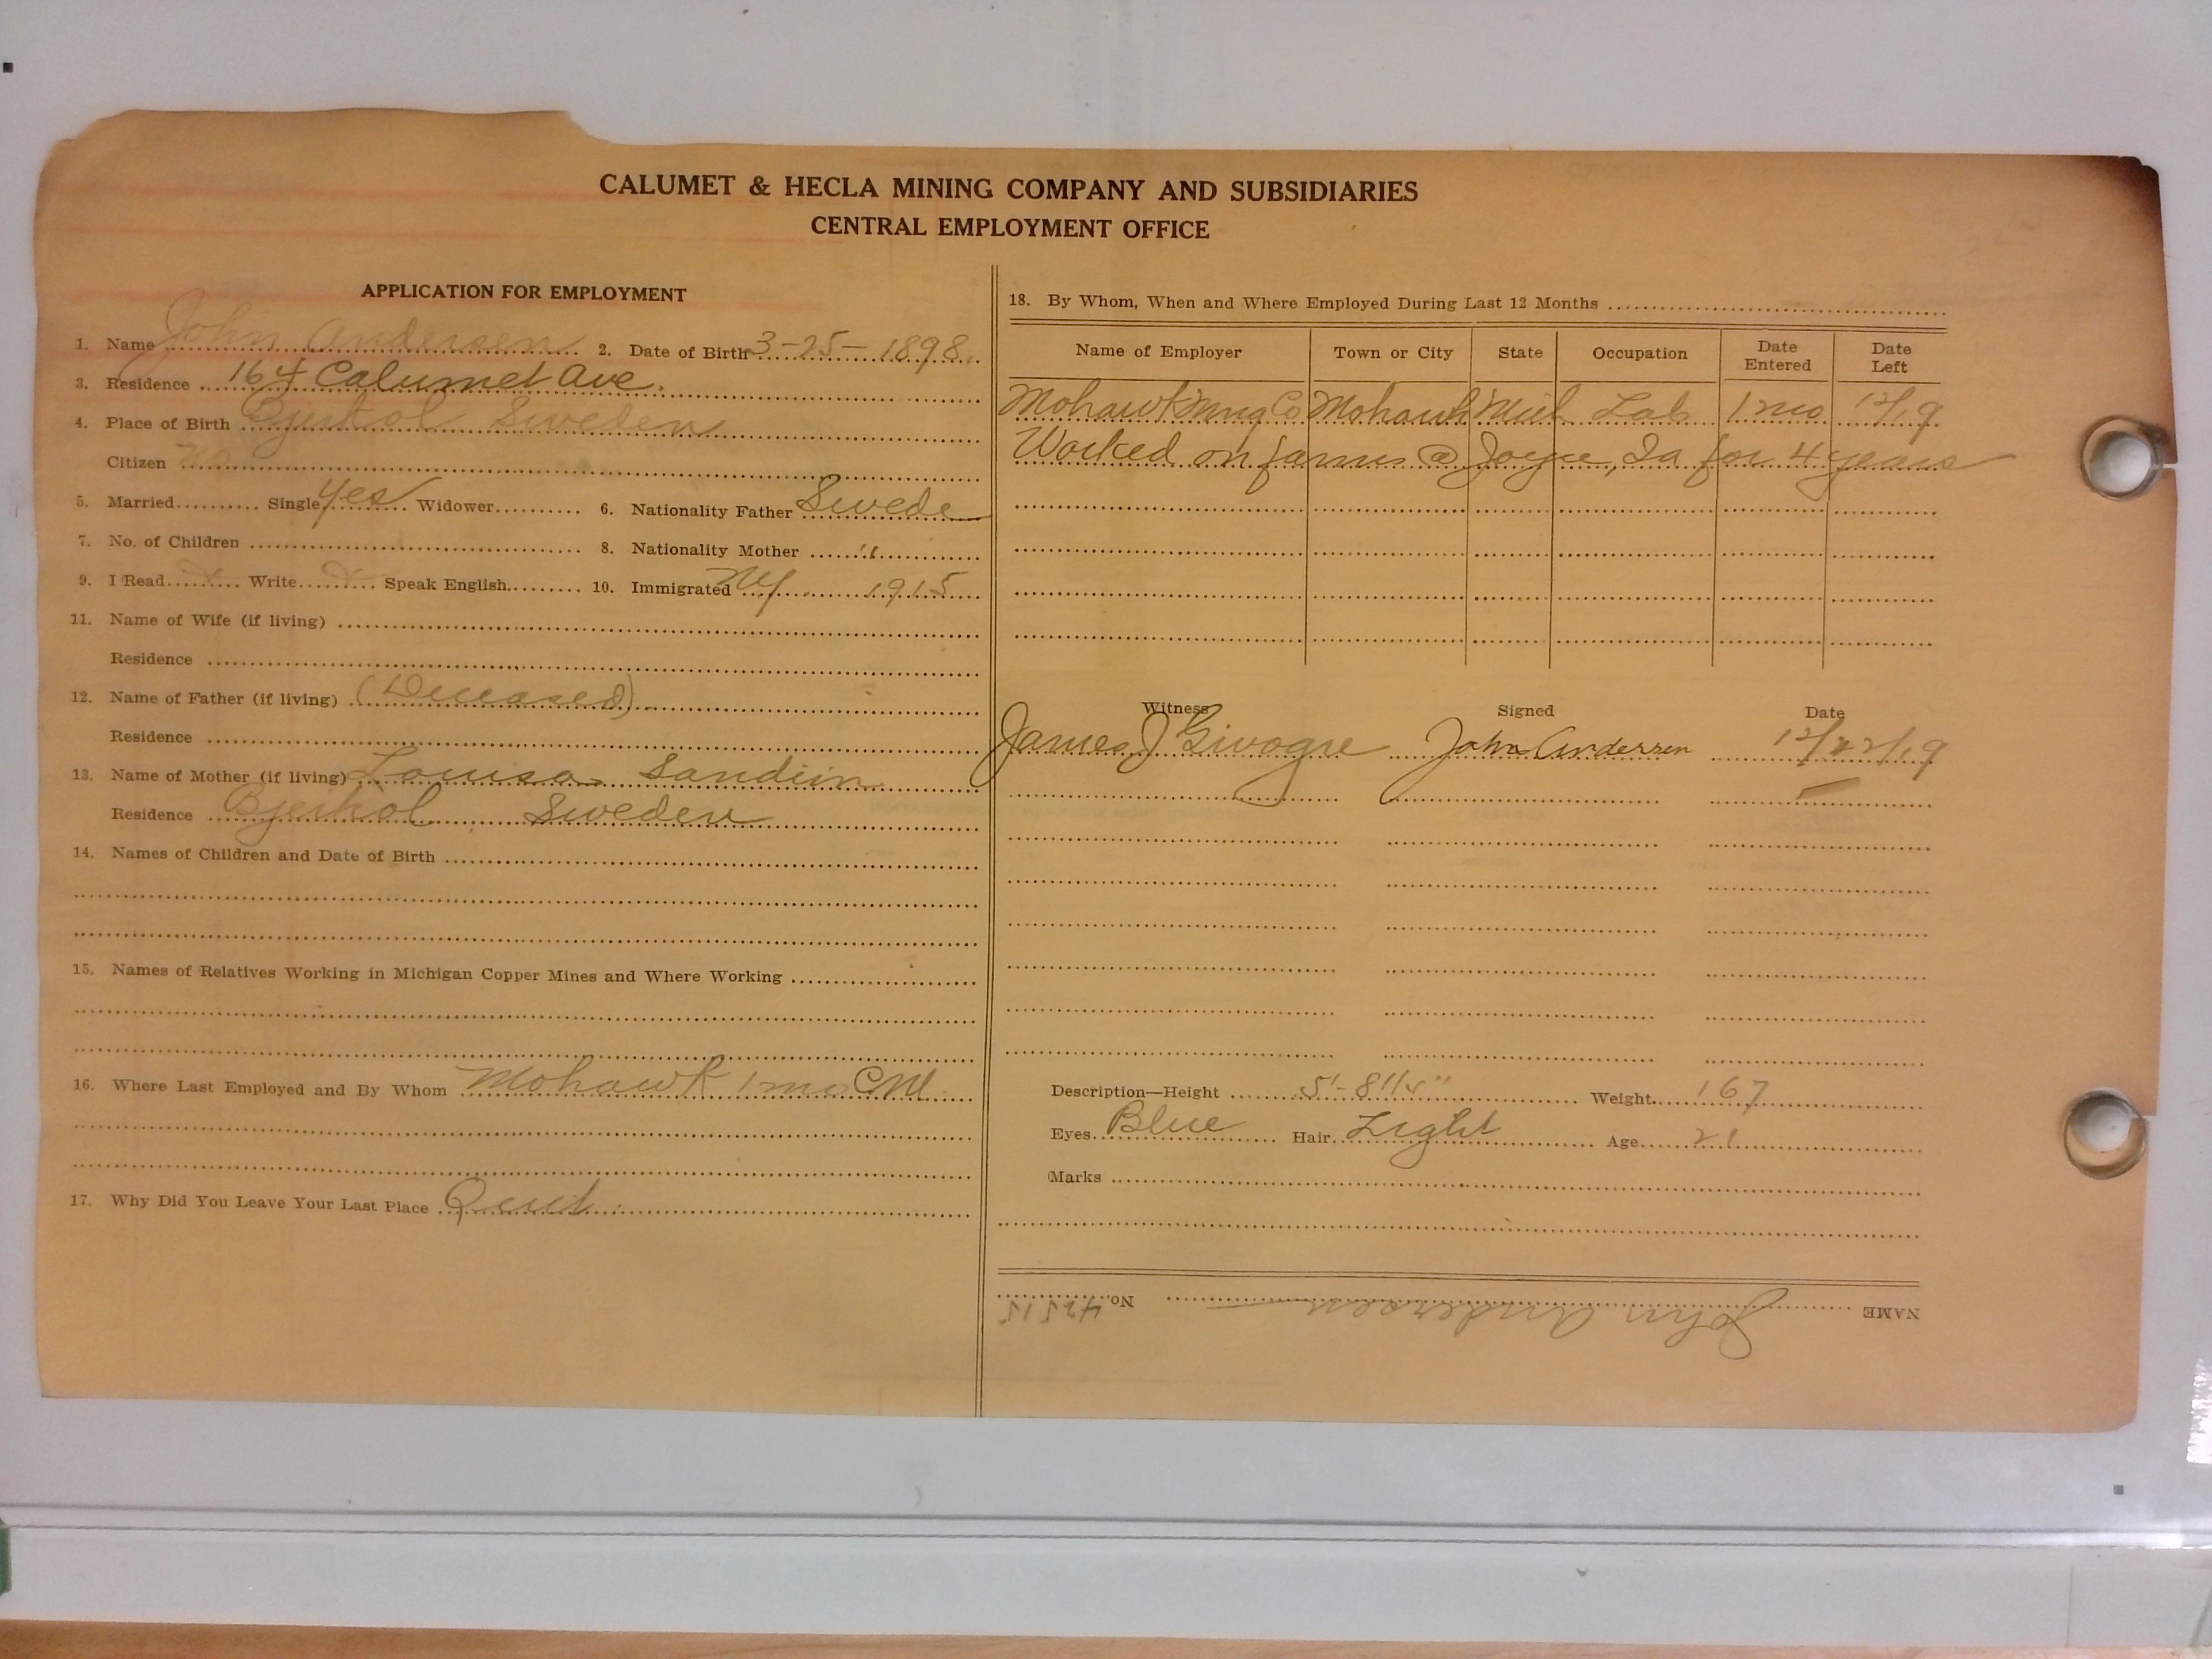 CALUMET & HECLA MINING COMPANY AND SUBSIDIARIES
CENTRAL EMPLOYMENT OFFICE
APPLICATION FOR EMPLOYMENT
1. Name John Andersen 2. Date of Birth 3-25-1898
3. Residence 164 Calumet Ave.
4. Place of Birth Sweden
Citizen No
5. Married Single Yes Widower 6. Nationality Father Swede
7. No. of Children 8. Nationality Mother "
9. I Read x Write x Speak English 10. Immigrated NY 1915
11. Name of Wife (if living)
Residence
12. Name of Father (if living) (Deceased)
Residence
13. Name of Mother (if living) Louisa
Residence Sweden
14. Names of Children and Date of Birth
15. Names of Relatives Working in Michigan Copper Mines and Where Working
16. Where Last Employed and By Whom Mohawk 1 mo
17. Why Did You Leave Your Last Place Quit
18. By Whom, When and Where Employed During Last 12 Months
Name of Employer Town or City State Occupation Date Entered Date Left
Mohawk Mng Co Mohawk Mich Lab 1 mo 12/19
Worked on farms @ Joyce, Ia for 4 years
Witness Signed Date
James J John Andersen 12/22/19
Description—Height 5'-8 1/4" Weight 167
Eyes Blue Hair Light Age 21
Marks
NAME John Andersen No.